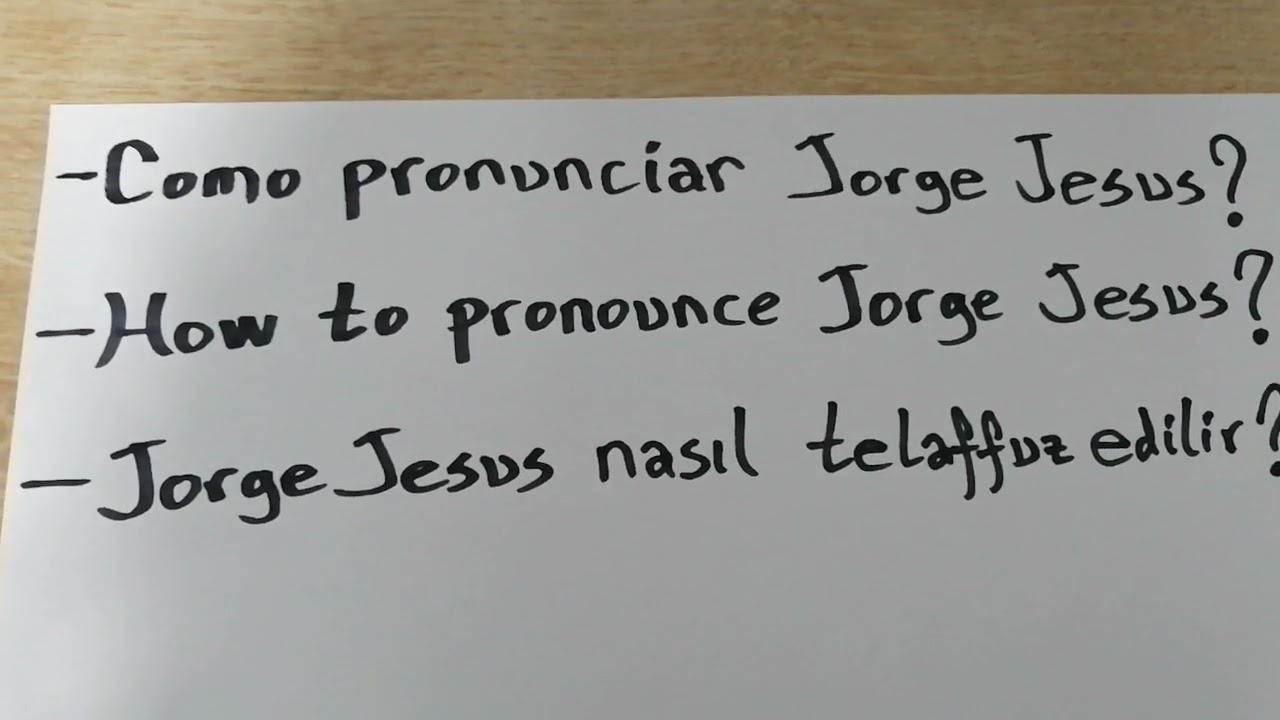 -Como pronunciar Jorge Jesus?
-How to pronounce Jorge Jesus?
-Jorge Jesus nasıl telaffuz edilir?